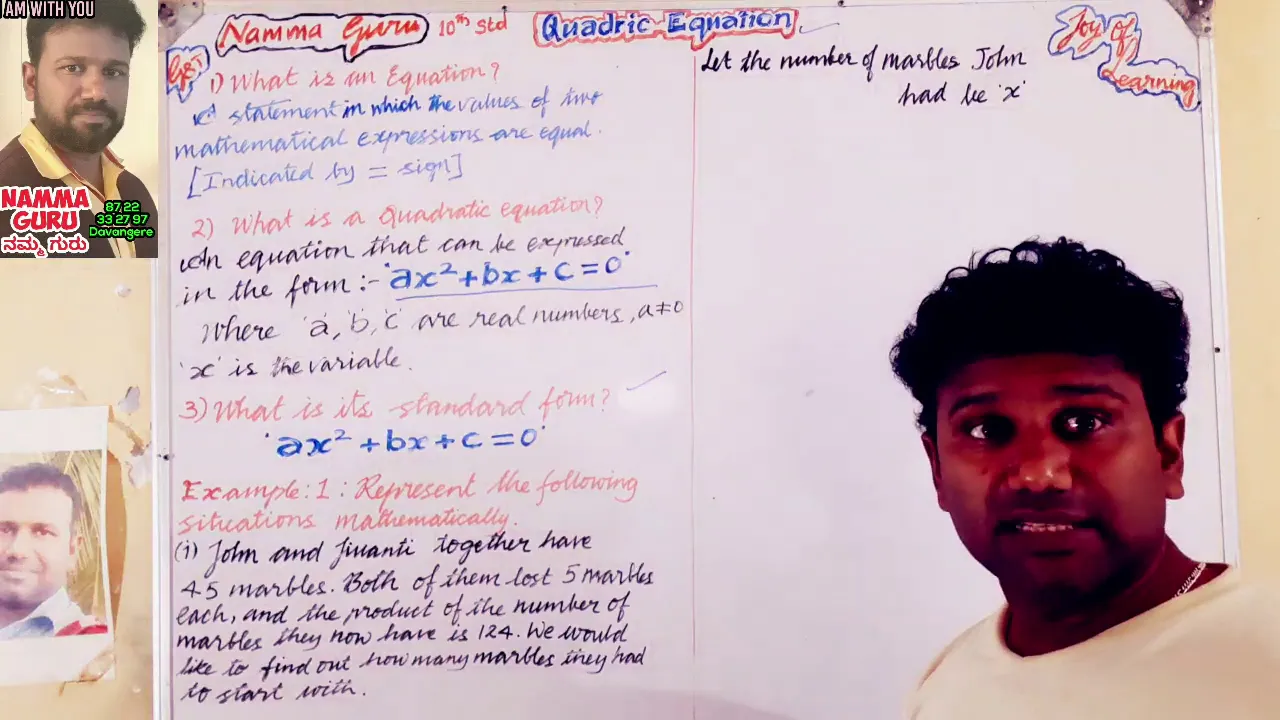 I AM WITH YOU
NAMMA
GURU
ನಮ್ಮ ಗುರು
87,22
33 27 97
Davangere
Namma Guru 10th Std Quadric Equation
Joy of
Learning
GRT
1) What is an Equation?
A statement in which the values of two
mathematical expressions are equal.
[Indicated by = sign]
2) What is a Quadratic equation?
An equation that can be expressed
in the form :- 'ax² + bx + c = 0'
Where 'a', 'b', 'c' are real numbers, a ≠ 0
'x' is the variable.
3) What is its standard form?
'ax² + bx + c = 0'
Example: 1 : Represent the following
situations mathematically.
(i) John and Jivanti together have
45 marbles. Both of them lost 5 marbles
each, and the product of the number of
marbles they now have is 124. We would
like to find out how many marbles they had
to start with.
Let the number of marbles John
had be 'x'